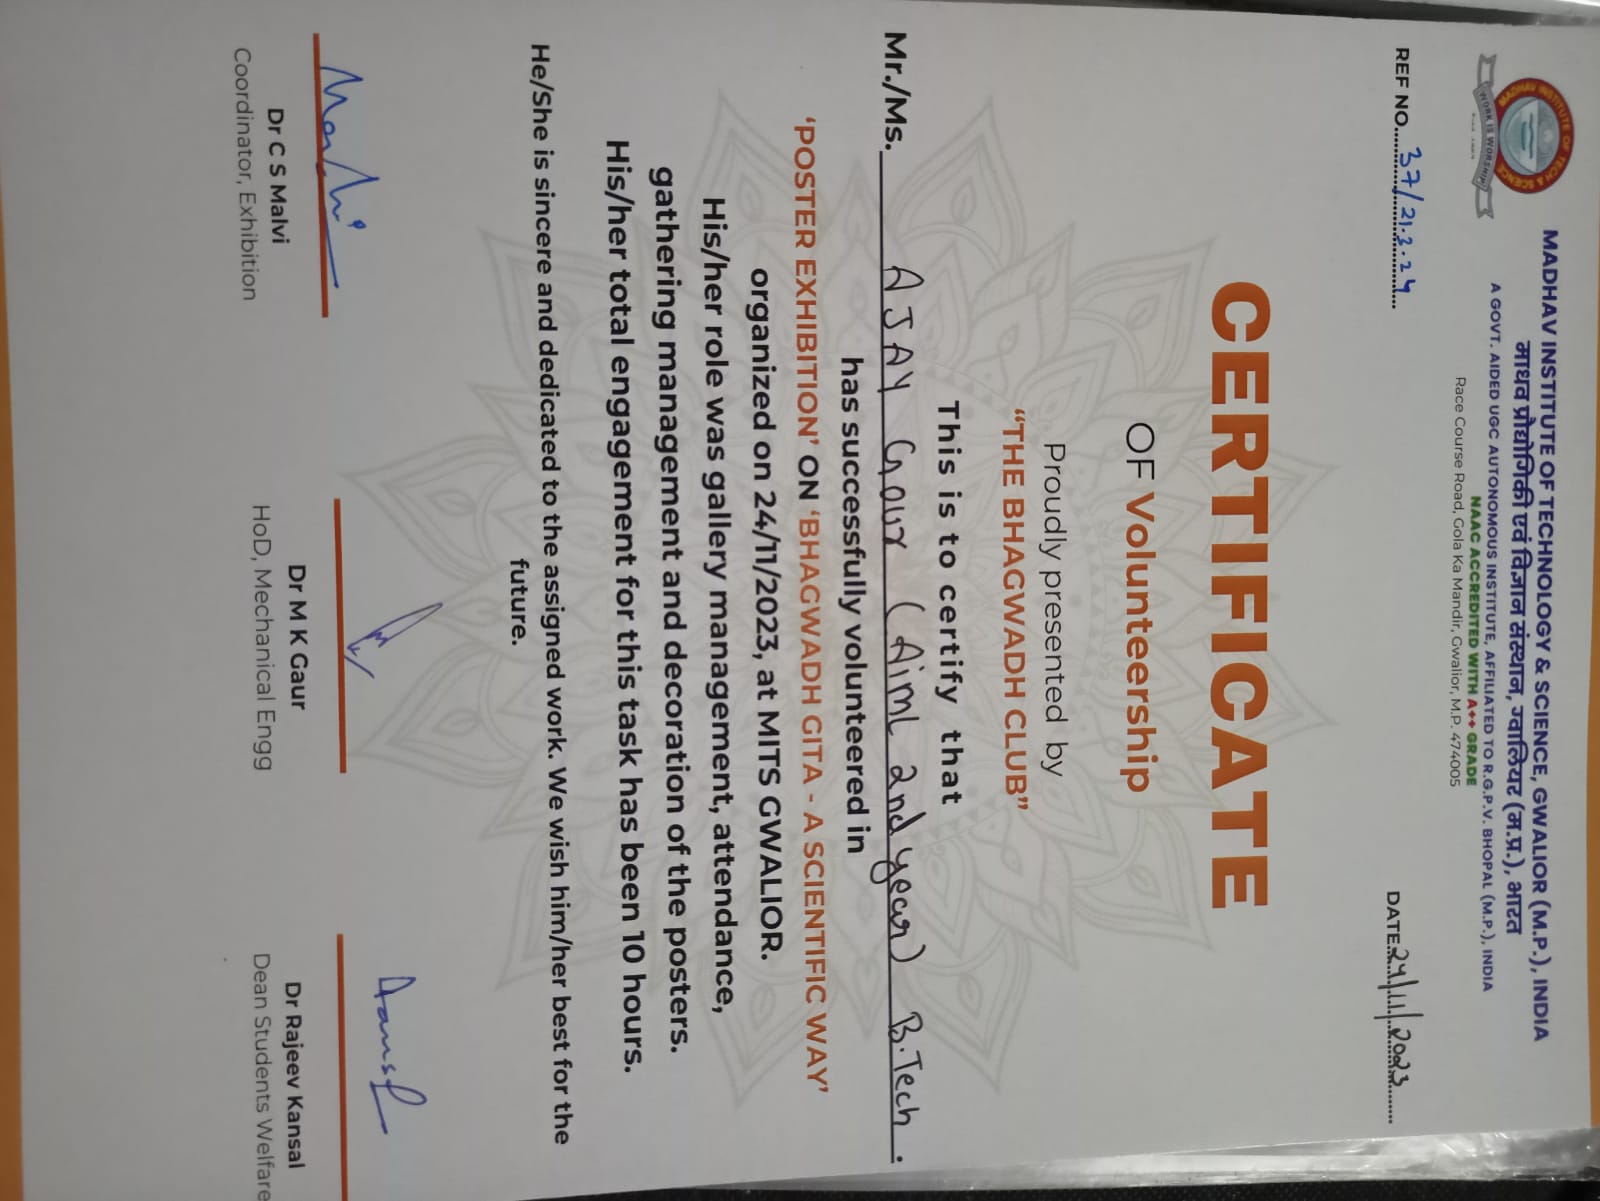 MADHAV INSTITUTE OF TECHNOLOGY & SCIENCE, GWALIOR (M.P.), INDIA
माधव प्रौद्योगिकी एवं विज्ञान संस्थान, ग्वालियर (म.प्र.), भारत
A GOVT. AIDED UGC AUTONOMOUS INSTITUTE, AFFILIATED TO R.G.P.V. BHOPAL (M.P.), INDIA
NAAC ACCREDITED WITH A++ GRADE
Race Course Road, Gola Ka Mandir, Gwalior, M.P. 474005
MADHAV INSTITUTE OF TECH & SCIENCE
WORK IS WORSHIP
REF NO. 37/21.3.24
DATE. 24/11/2023
CERTIFICATE
OF Volunteership
Proudly presented by
“THE BHAGWADH CLUB”
This is to certify that
Mr./Ms. AJAY Gour (Aiml 2nd year) B.Tech.
has successfully volunteered in
‘POSTER EXHIBITION’ ON ‘BHAGWADH GITA - A SCIENTIFIC WAY’
organized on 24/11/2023, at MITS GWALIOR.
His/her role was gallery management, attendance,
gathering management and decoration of the posters.
His/her total engagement for this task has been 10 hours.
He/She is sincere and dedicated to the assigned work. We wish him/her best for the
future.
Dr C S Malvi
Coordinator, Exhibition
Dr M K Gaur
HoD, Mechanical Engg
Dr Rajeev Kansal
Dean Students Welfare